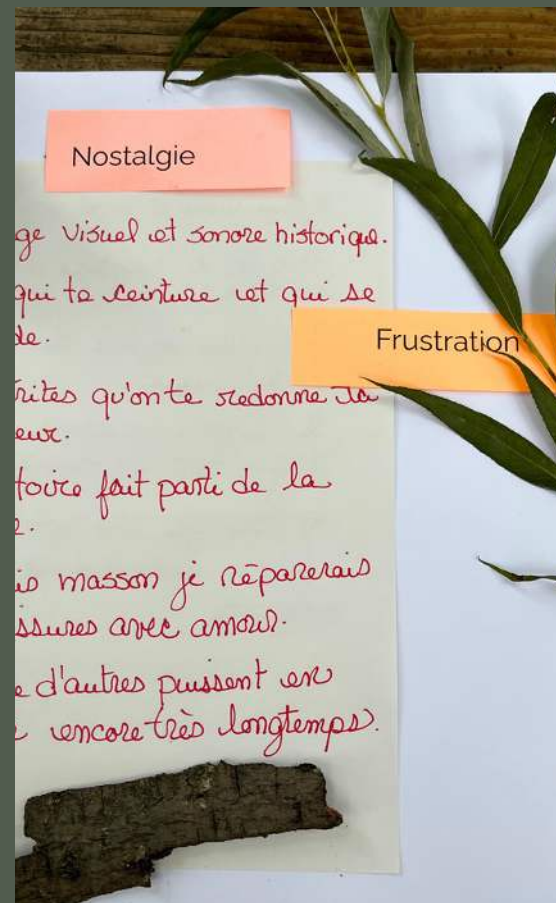 Nostalgie
ge visuel et sonore historique.
qui te ceinture et qui se
de.
Frustration
rites qu'on te redonne ta
eur.
toire fait parti de la
is masson je réparerais
ssures avec amour.
e d'autres puissent en
encore très longtemps.